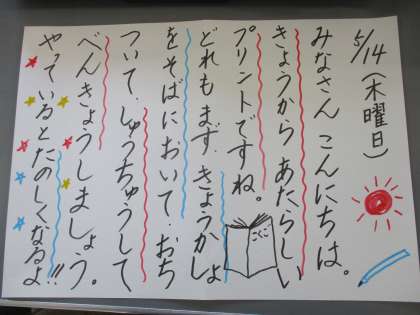 5/14(木曜日)
みなさん こんにちは。
きょうから あたらしい
プリントですね。
どれもまず、きょうかしょ
をそばにおいて、おち
ついて、しゅうちゅうして
べんきょうしましょう。
やっているとたのしくなるよ!!
こくご